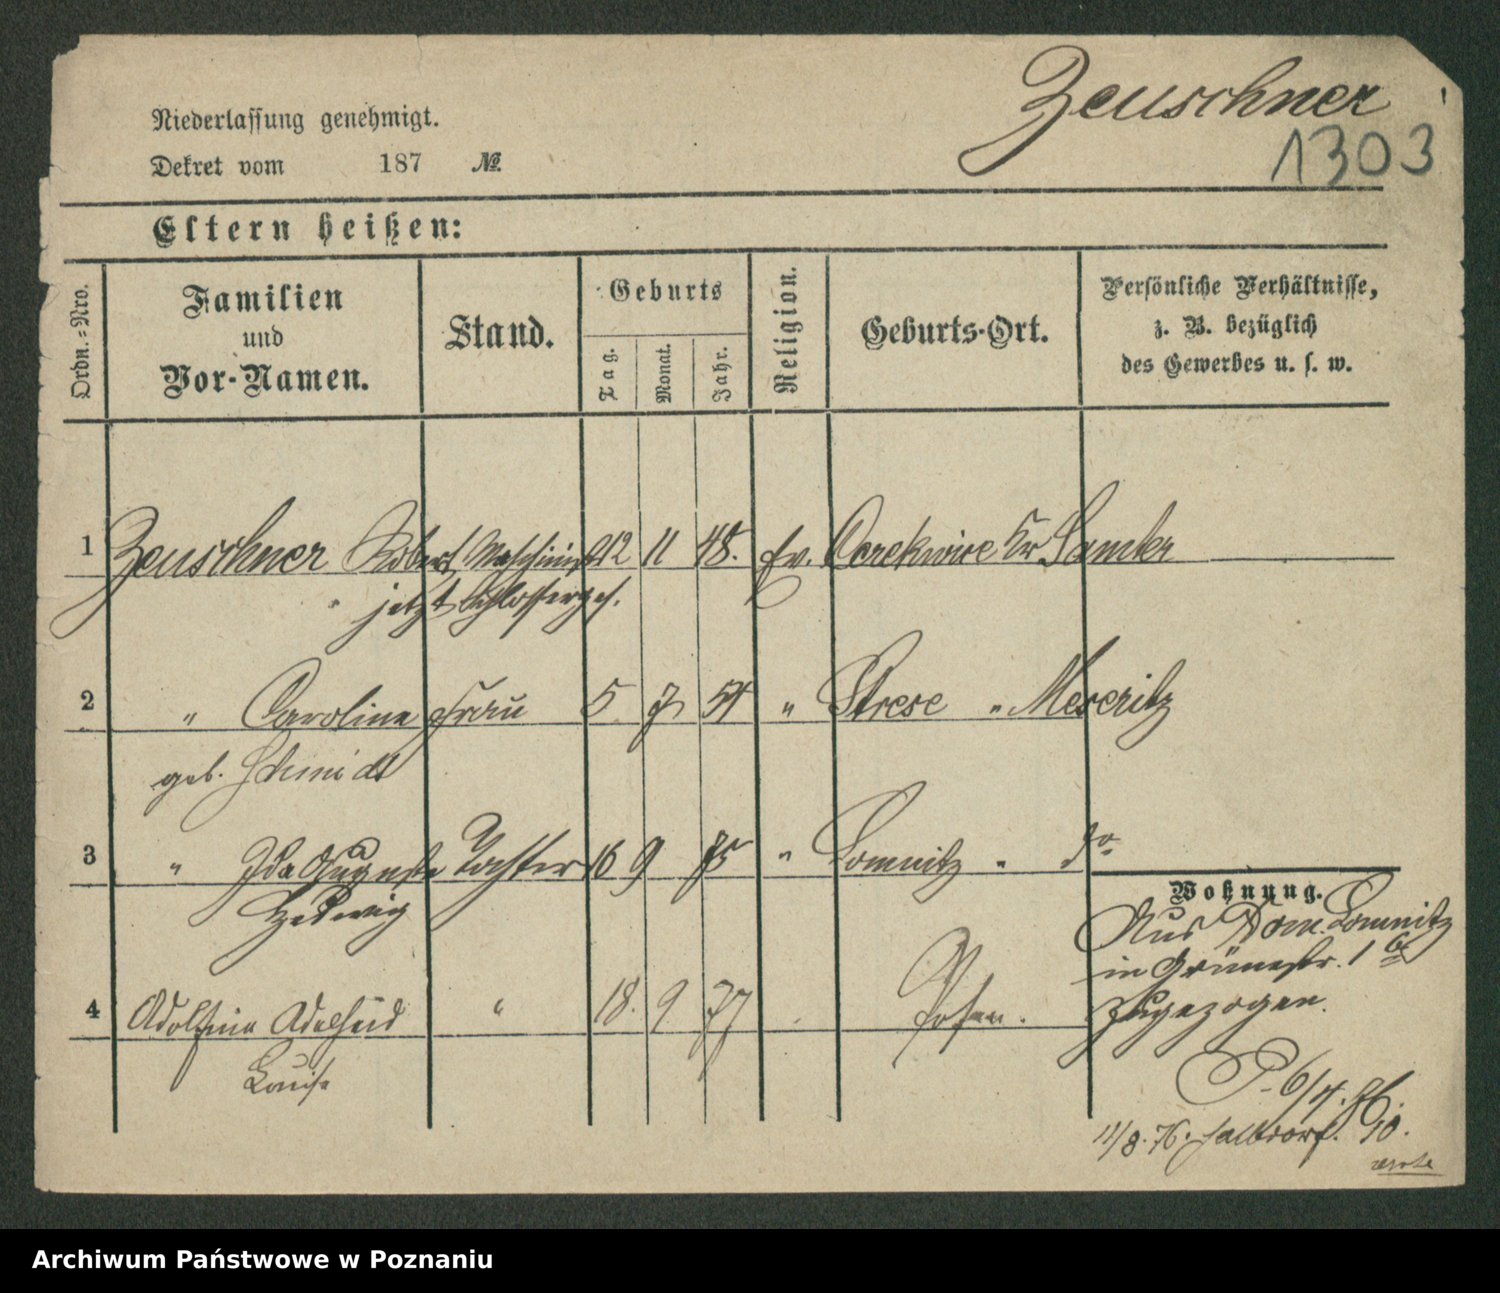 Zeuschner
1303
Niederlassung genehmigt.
Dekret vom 187 №
Eltern heißen:
Ordn.-Nro.
Familien und Vor-Namen.
Stand.
Geburts
Tag. Monat. Jahr.
Religion.
Geburts-Ort.
Persönliche Verhältnisse, z. B. bezüglich des Gewerbes u. s. w.
1 Zeuschner Robert Maschinist 12 11 48. Ev. Kr Samter
jetzt Schlosserges.
2 " Caroline Frau 5 7 54 " Strese " Meseritz
geb. Schmidt
3 " Ida Auguste Tochter 16 9 75 " Lomnitz " do
Hedwig
4 Adolfine Adelheid " 18. 9 77 Posen.
Louise
Wohnung.
Aus Dom. Lomnitz
in Grünestr. 1
zugezogen.
P. 6/4. 76.
11/8. 76. Halbdorfstr. 10.